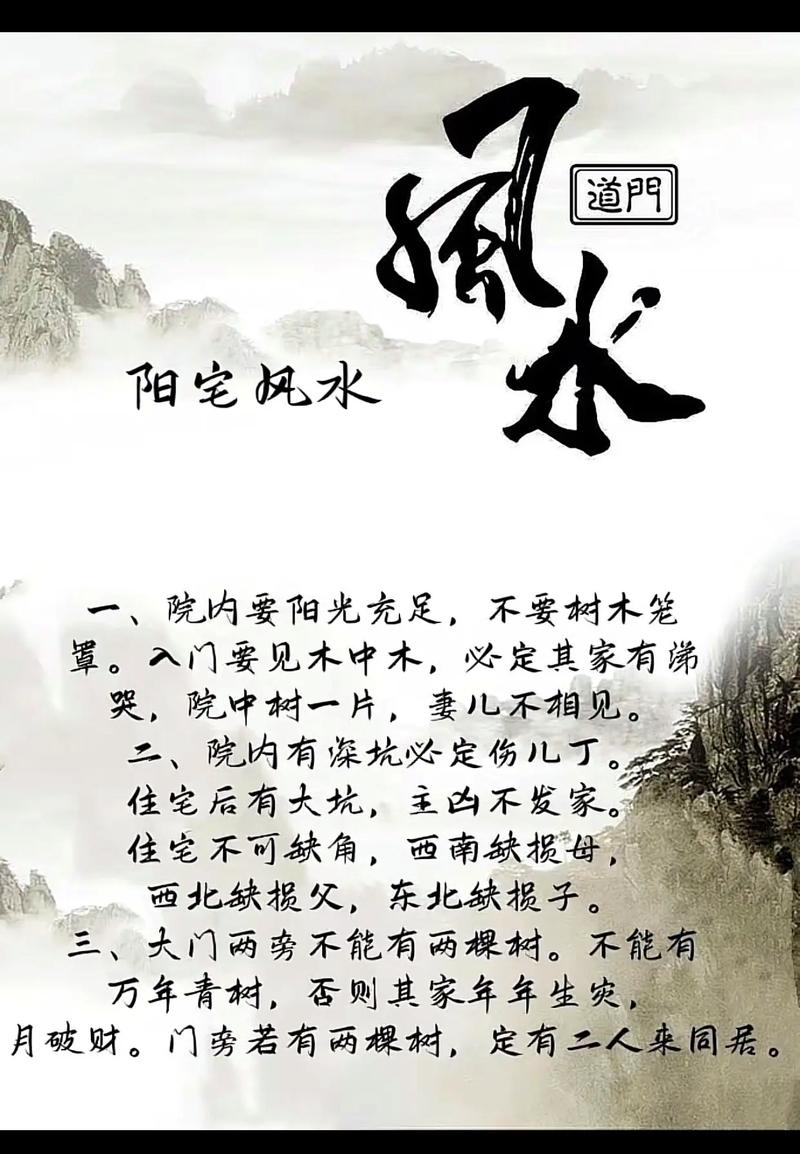 風水
道門
阳宅风水
一、院内要阳光充足，不要树木笼
罩。入门要见木中木，必定其家有涕
哭，院中树一片，妻儿不相见。
二、院内有深坑必定伤儿丁。
住宅后有大坑，主凶不发家。
住宅不可缺角，西南缺损母，
西北缺损父，东北缺损子。
三、大门两旁不能有两棵树。不能有
万年青树，否则其家年年生灾，
月破财。门旁若有两棵树，定有二人来同居。